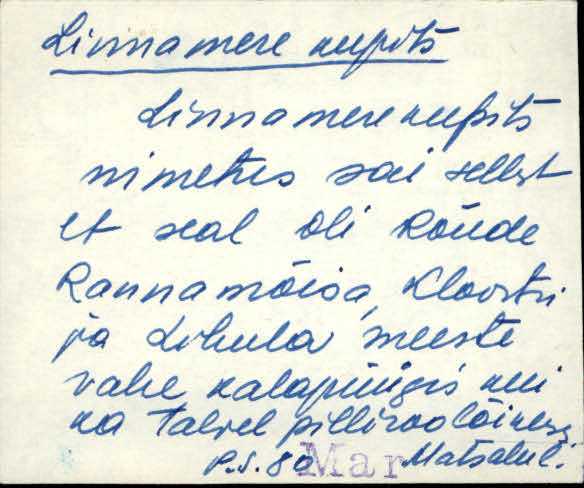 Linnamere kupits
Linnamere kupits
nimetus sai sellest
et seal oli Rõude
Rannamõisa, Kloostri
ja Lihula meeste
vahe kalapüügis kui
ka Talvel pilliroolõikusel
P.S. 80 Mar Matsalu l.